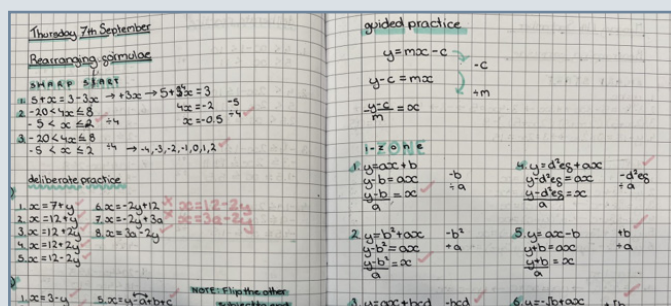 Thursday 7th September
Rearranging formulae
SHARP START
1. 5+x=3-3x → +3x → 5+4x=3
4x=-2 -5
x=-0.5 ÷4
2. -20<4x≤8
-5<x≤2 ÷4
3. -20<4x≤8
-5<x≤2 ÷4 → -4,-3,-2,-1,0,1,2
deliberate practice
1. x=7+y
2. x=12+y
3. x=12+2y
4. x=12+2y
5. x=12-2y
6. x=-2y+12 x=12-2y
7. x=-2y+3a x=3a-2y
8. x=3a-2y
1. x=3-y
5. x=y-a+b+c
NOTE: Flip the other
guided practice
y=mx-c
-c
y-c=mx
÷m
y-c/m=x
i-zone
1. y=ax+b
y-b=ax -b
y-b/a=x ÷a
2. y=b²+ax -b²
y-b²=ax ÷a
y-b²/a=x
3. y=ax+bcd -bcd
4. y=d²eg+ax
y-d²eg=ax -d²eg
y-d²eg/a=x ÷a
5. y=ax-b +b
y+b=ax ÷a
y+b/a=x